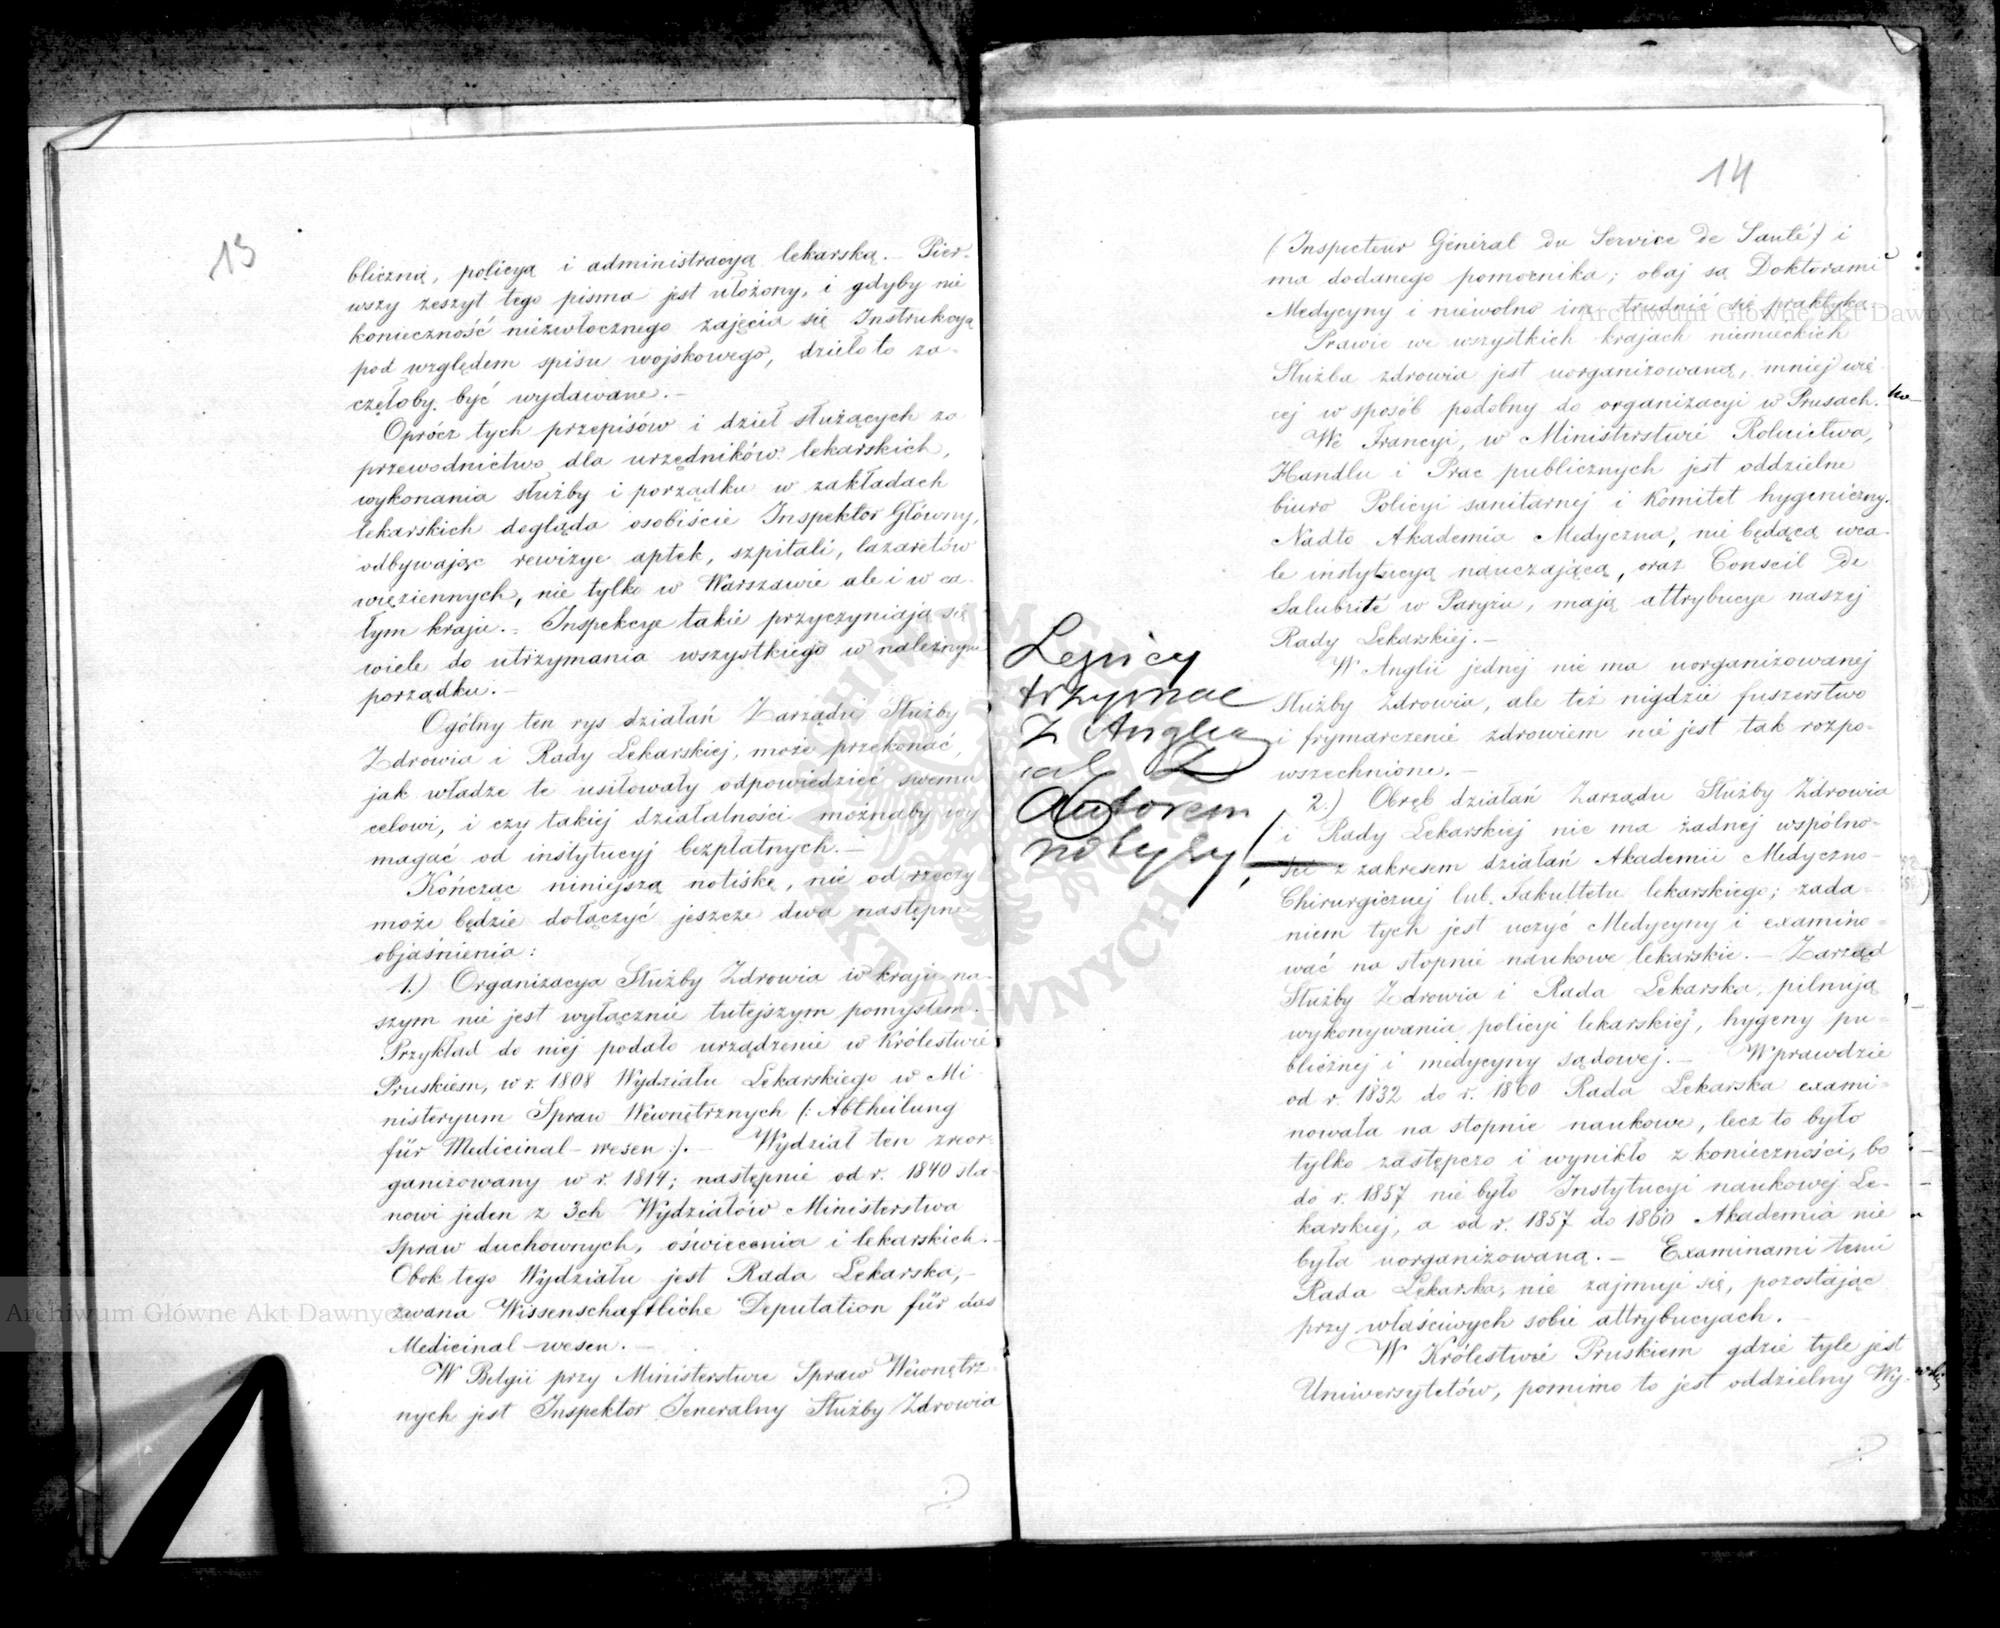 13
bliczną, policyą i administracyą lekarską. – Pier-
wszy zeszyt tego pisma jest ułożony, i gdyby nie
konieczność niezwłocznego zajęcia się Instrukcyą
pod względem spisu wojskowego, dzieło to za-
częłoby być wydawane. –
Oprócz tych przepisów i dzieł służących za
przewodnictwo dla urzędników lekarskich,
wykonania służby i porządku w zakładach
lekarskich dogląda osobiście Inspektor Główny,
odbywając rewizye aptek, szpitali, lazaretów
więziennych, nie tylko w Warszawie ale i w ca-
łym kraju. – Inspekcye takie przyczyniają się
wiele do utrzymania wszystkiego w należnym
porządku. –
Ogólny ten rys działań Zarządu Służby
Zdrowia i Rady Lekarskiej, może przekonać,
jak władze te usiłowały odpowiedzieć swemu
celowi, i czy takiej działalności możnaby wy-
magać od instytucyj bezpłatnych. –
Kończąc niniejszą notiskę, nie od rzeczy
może będzie dołączyć jeszcze dwa następne
objaśnienia:
1.) Organizacya Służby Zdrowia w kraju na-
szym nie jest wyłącznie tutejszym pomysłem. –
Przykład do niej podało urządzenie w Królestwie
Pruskiem, w r. 1808 Wydziału Lekarskiego w Mi-
nisteryum Spraw Wewnętrznych (: Abtheilung
für Medicinal-wesen :). – Wydział ten zreor-
ganizowany w r. 1814; następnie od r. 1840 sta-
nowi jeden z 3ch Wydziałów Ministerstwa
spraw duchownych, oświecenia i lekarskich. –
Obok tego Wydziału jest Rada Lekarska, –
zwana Wissenschaftliche Deputation für das
Medicinal-wesen. –
W Belgii przy Ministerstwie Spraw Wewnętrz-
nych jest Inspektor Jeneralny Służby Zdrowia
14
(: Inspecteur Général du Service de Santé) i
ma dodanego pomocnika; obaj są Doktorami
Medycyny i niewolno im trudnić się praktyką.
Prawie we wszystkich krajach niemieckich
Służba zdrowia jest uorganizowaną, mniej wię-
cej w sposób podobny do organizacyi w Prusach.
We Francyi, w Ministerstwie Rolnictwa,
Handlu i Prac publicznych jest oddzielne
biuro Policyi sanitarnej i Komitet hygeniczny.
Nadto Akademia Medyczna, nie będąca wca-
le instytucyą nauczającą, oraz Conseil de
Salubrité w Paryżu, mają attrybucye naszej
Rady Lekarskiej. –
W Anglii jednej nie ma uorganizowanej
Służby Zdrowia, ale też nigdzie fuszerstwo
i frymarczenie zdrowiem nie jest tak rozpo-
wszechnione. –
2.) Obręb działań Zarządu Służby Zdrowia
i Rady Lekarskiej nie ma żadnej wspólno-
ści z zakresem działań Akademii Medyczno-
Chirurgicznej lub Fakultetu lekarskiego; zada-
niem tych jest uczyć Medycyny i examino-
wać na stopnie naukowe lekarskie. – Zarząd
Służby Zdrowia i Rada Lekarska, pilnują
wykonywania policyi lekarskiej, hygeny pu-
blicznej i medycyny sądowej. – Wprawdzie
od r. 1832 do r. 1860 Rada Lekarska exami-
nowała na stopnie naukowe, lecz to było
tylko zastępczo i wynikło z konieczności, bo
do r. 1857 nie było Instytucyi naukowej Le-
karskiej, a od r. 1857 do 1860 Akademia nie
była uorganizowaną. – Examinami temi
Rada Lekarska, nie zajmuje się, pozostając
przy właściwych sobie attrybucyach. –
W Królestwie Pruskiem gdzie tyle jest
Uniwersytetów, pomimo to jest oddzielny Wy-
Lepiey
trzymac
z Anglia
Autorem
notyzy!
Archiwum Główne Akt Dawnych
Archiwum Główne Akt Dawnych
ARCHIWUM GŁÓWNE AKT DAWNYCH